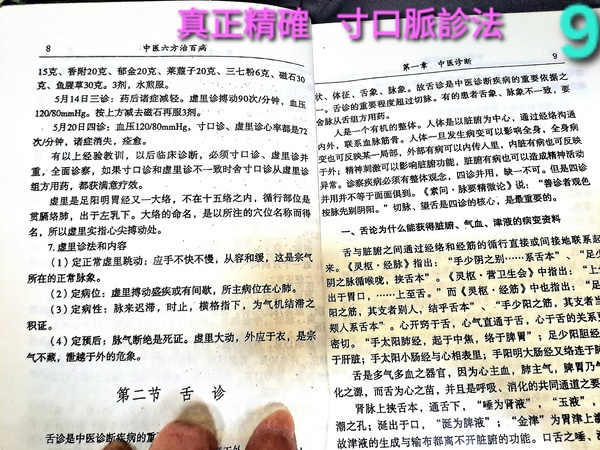 真正精確 寸口脈診法
9
8 中医六方治百病
15克、香附20克、郁金20克、莱菔子20克、三七粉6克、磁石30
克、鱼腥草30克。3剂，水煎服。
5月14日三诊：药后诸症减轻。虚里诊搏动90次/分钟，血压
120/80mmHg。按上方减去磁石再服3剂。
5月20日四诊：血压120/80mmHg，寸口诊、虚里诊心率都是72
次/分钟，诸症消失，痊愈。
有以上经验教训，以后临床诊断，必须寸口诊、虚里诊并
重，全面诊察，如果寸口诊和虚里诊不一致时舍寸口诊从虚里诊
组方用药，都获满意疗效。
虚里是足阳明胃经又一大络，不在十五络之内，循行部位是
贯膈络肺，出于左乳下。大络的命名，是以所往的穴位名称而得
名，所以虚里实指心尖搏动处。
7.虚里诊法和内容
（1）定正常虚里跳动：应手不快不慢，从容和缓，这是宗气
所在的正常脉象。
（2）定病位：虚里搏动盛疾或有间歇，所主病位在心肺。
（3）定病性：脉来迟滞，时止，横格指下，为气机结滞之
积证。
（4）定预后：脉气断绝是死证。虚里大动，外应于衣，是宗
气不藏，泄越于外的危象。
第二节 舌诊
舌诊是中医诊断疾病的重
第一章 中医诊断 9
状、体征、舌象、脉象。故舌诊是中医诊断疾病的重要依据之
一。舌诊的重要程度超过切脉。有的患者舌象、脉象不一致，要
舍脉从舌组方用药。
人是一个有机的整体。人体是以脏腑为中心，通过经络沟通
内外，联系血脉筋骨。人体一旦发生病变可以影响全身，全身病
变也可反映某一局部，外部有病可以内传入里，内脏有病也可反映
于外；精神刺激可以影响脏腑功能，脏腑有病也可以造成精神活动
异常。诊察疾病必须有整体观念，四诊并用，缺一不可。但是四诊
并用并不等于面面俱到。《素问·脉要精微论》说：“善诊者观色
按脉先别阴阳。”切脉、望舌是四诊的核心，是最重要的。
一、舌论为什么能获得脏腑、气血、津液的病变资料
舌与脏腑之间通过经络和经筋的循行直接或间接地联系起
来。《灵枢·经脉》指出：“手少阴之别……系舌本”、“足少
阴之脉循喉咙，挟舌本”。《灵枢·营卫生会》中指出：“上
出于胃口，……上至舌”。而《灵枢·经筋》中也指出：“足
阳之筋，其支者别人，结于舌本”、“手少阳之筋，其支者当
颊人系舌本”。心开窍于舌，心气直通于舌，心于舌的关系更
密切。“手太阳肺经，起于中焦，络于脾胃”；足少阳胆经
于肝脏；手太阳小肠经与心相表里；手阳明大肠经又络连于肺
舌是多气多血之器官，因为心主血，肺主气，脾胃乃气
化之源，而舌为心之苗，并且是呼吸、消化的共同通道之要
肾脉上挟舌本，通舌下，“唾为肾液”“玉液”，
潮之孔；涎出于口，“涎为脾液”；“金津”为胃津上潮
故津液的生成与输布都离不开脏腑的功能。口舌之唾、